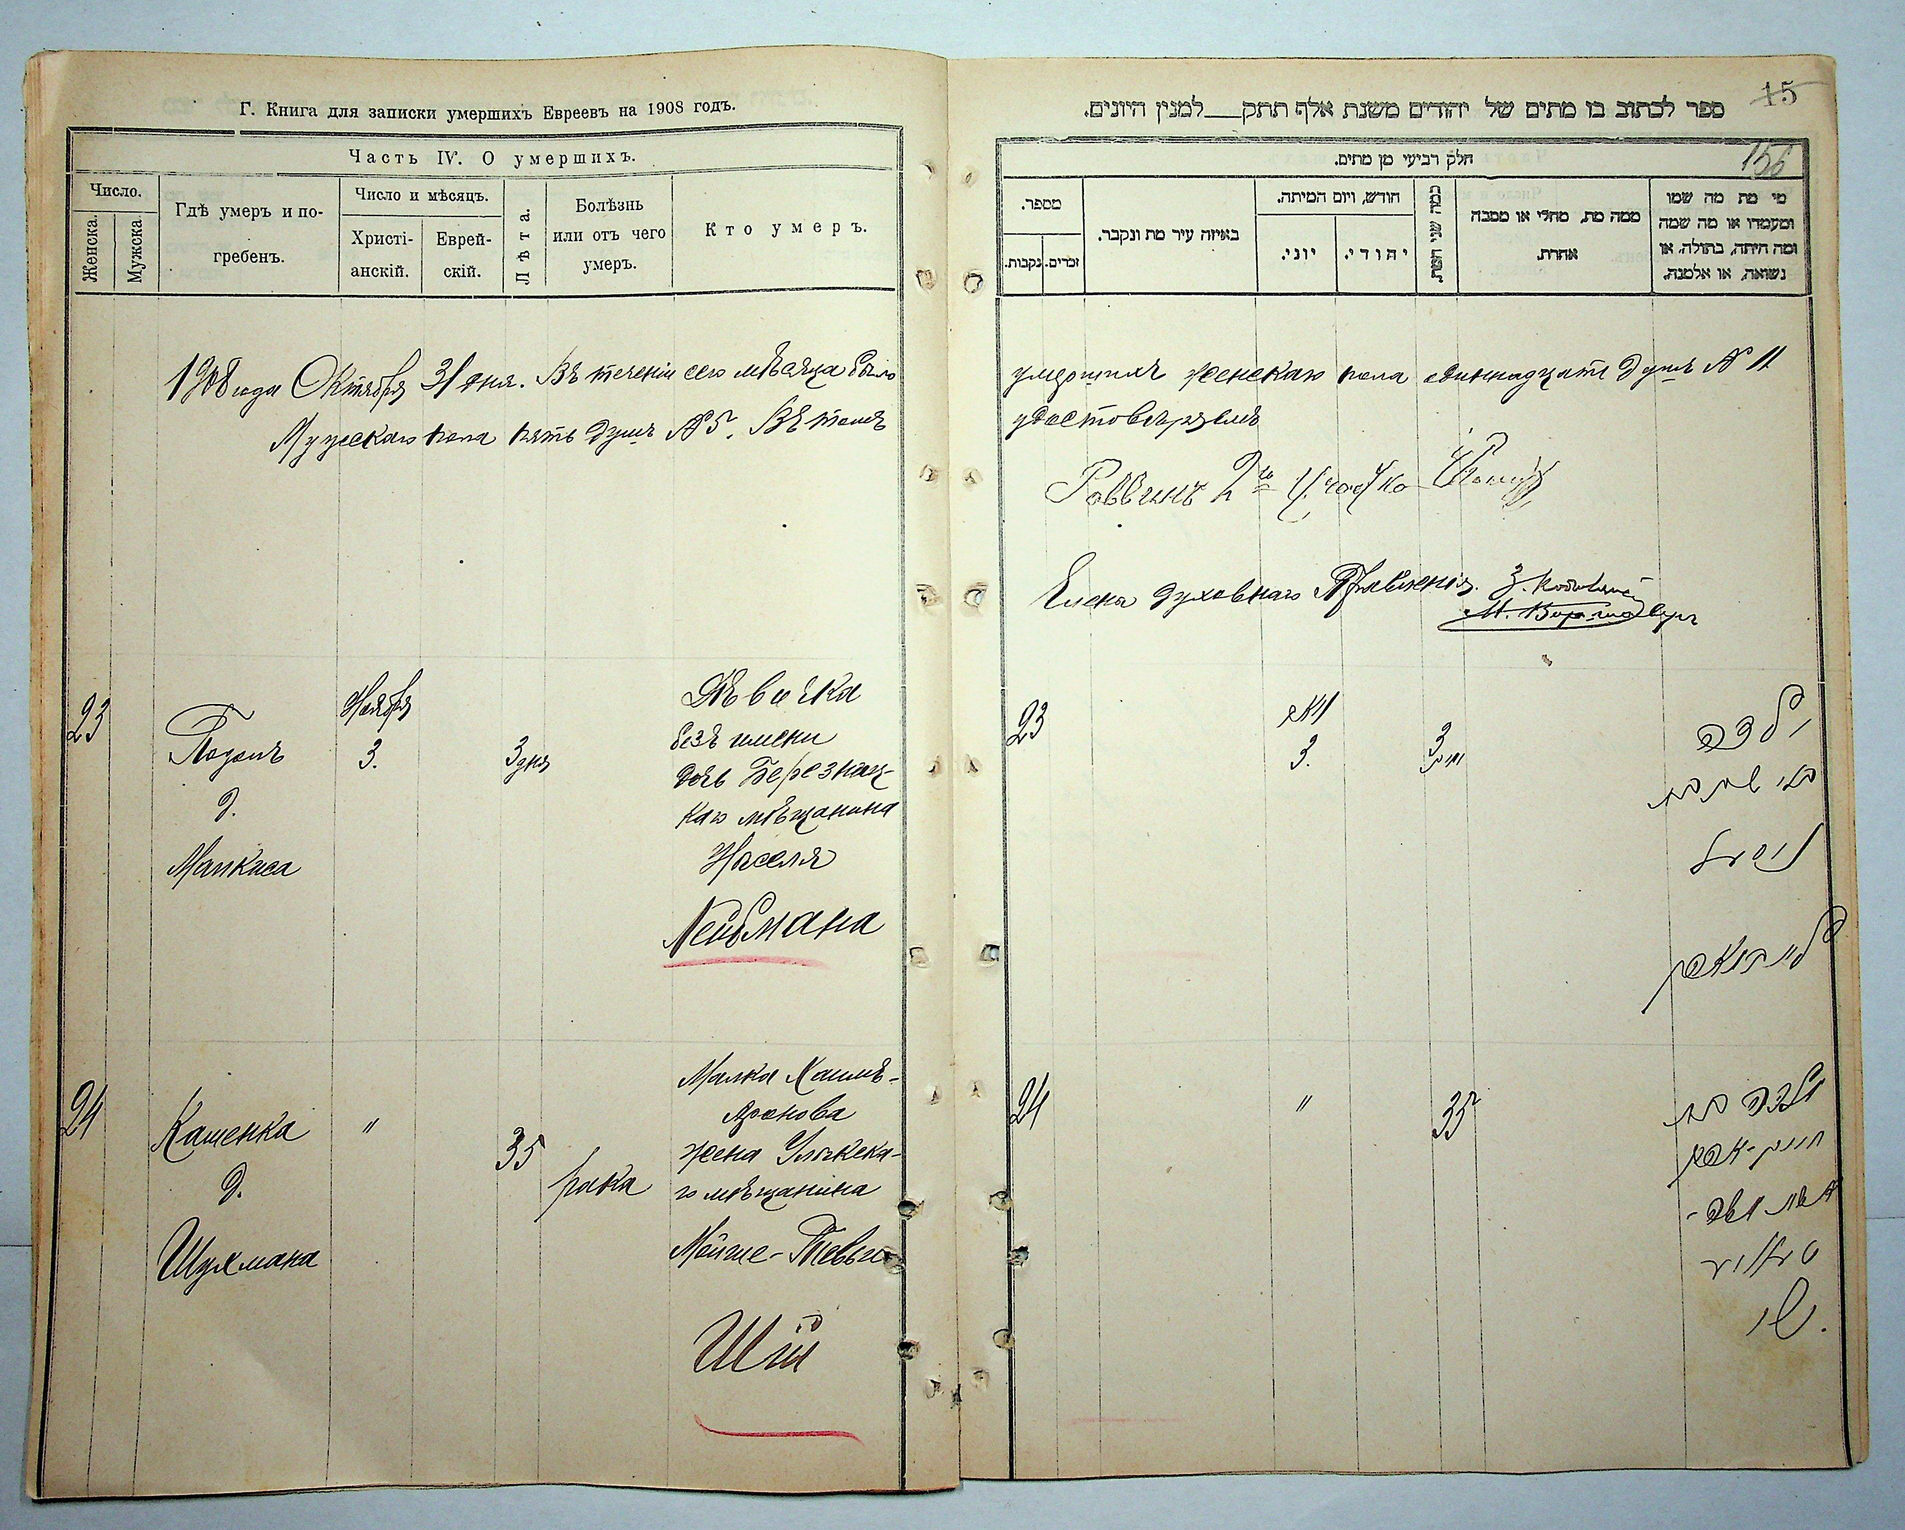 Г. Книга для записки умершихъ Евреевъ на 1908 годъ.
Часть IV. О умершихъ.
Число.
Женска.
Мужска.
Гдѣ умеръ и по-
гребенъ.
Число и мѣсяцъ.
Христі-
анскій.
Еврей-
скій.
Лѣта.
Болѣзнь
или отъ чего
умеръ.
Кто умеръ.
1908 года Октября 31 дня. Въ теченіи сего мѣсяца было
Мужскаго пола пять душъ № 5. Въ томъ
23
Ноября
3.
3 дня
Д.
Дѣвочка
безъ имени
дочь Березнац-
каго мѣщанина
Нейлмана
24
Кашенка
"
35
рака
Д.
Шухмана
Малка Хаимъ-
Аронова
жена
го мѣщанина
Мойше-
Шій
ספר לכתוב בו מתים של יהודים משנת אלף תתק___למנין היונים.
15
156
חלק רביעי מן מתים.
מספר.
נקבות.
זכרים.
באיזה עיר מת ונקבר.
חודש, ויום המיתה.
יוני.
יהודי.
כמה שני חיות.
ממה מת, מחלי או מסבה
אחרת.
מי מת מה שמו
ומעמדו או מה שמה
ומה היתה, בתולה, או
נשואה, או אלמנה.
умершихъ женскаго пола одиннадцать душъ № 11
удостовѣряемъ
Раввинъ 2го Участка
Члены духовнаго Правленія.
23
3.
3
ילדה
בלי שם בת
24
"
35
מלכה בת
חיים-אהרן
אשת משה-